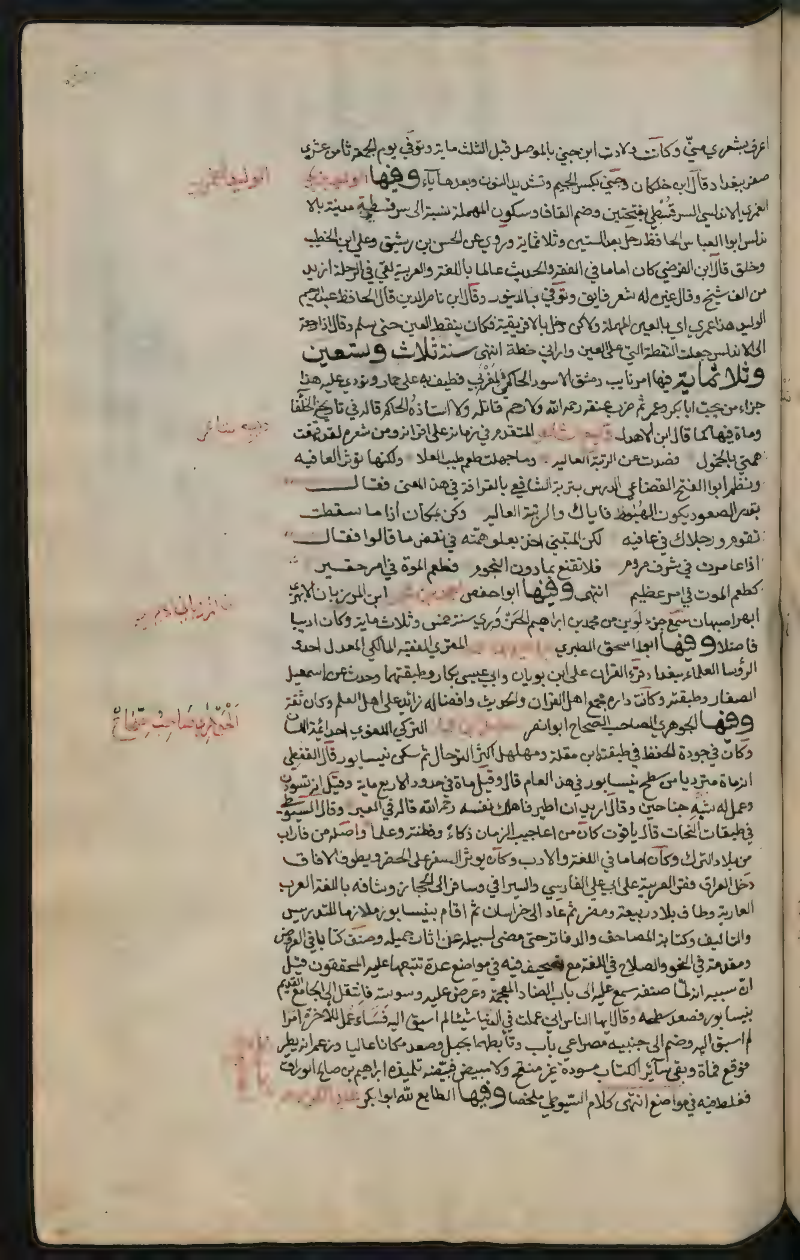 اعرف بشعري مني وكانت ولادت ابن جني بالموصل قبل الثلث ماية وتوفي يوم الجمعة ثامن عشري
صفر ببغداد قال ابن خلكان وجني بكسر الجيم وتشديد النون وبعدها ياء وفيها الوليد بن بكر
الوليد العمري
العمري الاندلسي السرقسطي بفتحتين وضم القاف وسكون المهملة نسبة الى سرقسطة مدينة بالا
ندلس ابوا العباس الحافظ رحل بعد الستين وثلاثماية وروي عن الحسن بن رشيق وعلي ابن الخطيب
وخلق قال ابن الفرضي كان اماما في الفقه والحديث عالما باللغة والعربية لقي في الرحلة ازيد
من الف شيخ وقال غيره له شعر فايق وتوفي بالدينور وقال ابن ناصر الدين قال الحافظ عبد الرحيم
الوليد هذا عمري اي بالعين المهملة ولاكن دخل بالافريقية فكان ينقط العين حتى سلم وقال اذا رجعت
الى الاندلس جعلت النقطة التي على العين واراني خطه انتهى سنة ثلاث وتسعين
وثلاثماية فيها امر نايب دمشق الاسود الحاكمي المغربي فطيف به على حمار ونودي عليه هذا
جزاء من يحب ابا بكر وعمر ثم ضرب عنقه رحمه الله ولا رحم قاتله ولا استاذه الحاكم قاله في تاريخ الخلفا
وماة فيها كما قال ابن الاهدل المتقدم في زمانه على اقرانه ومن شعره لقد قنعت
همتي بالخمول وصدت عن الرتبة العاليه وما جهلت طعم طيب العلا ولكنها تؤثر العافيه
ونظم ابوا الفتح القضاعي المدرس بتربة الشافعي بالقرافة في هذا المعنى فقال
بقدر الصعود يكون الهبوط فاياك والرتبة العاليه وكن بمكان اذا ما سقطت
تقوم ورجلاك في عافيه لكن المتنبي اخذ بعلو همته في نقض ما قالوا فقال
اذا غامرت في شرف مروم فلا تقنع بما دون النجوم فطعم الموت في امر حقير
كطعم الموت في امر عظيم انتهى وفيها ابوا حفص ابن المرزبان الابهري
ابهر اصبهان سمع جزء لوين من محمد بن ابراهيم الحزوري سنة خمس وثلاث ماية وكان اديبا
فاضلا وفيها ابوا اسحق الطبري المقري الفقيه المالكي المعدل احد
الرؤسا العلماء ببغداد قرء القران على ابن بويان وابي عيسى بكار وطبقتهما وحدث عن اسمعيل
الصفار وطبقته وكانت داره مجمع اهل القران والحديث وافضاله زائد على اهل العلم وكان ثقة
وفيها الجوهري صاحب الصحاح ابوا نصر التركي اللغوي احد ائمة اللسان
وكان في جودة الخط في طبقة ابن مقلة ومهلهل اكثر الترحال ثم سكن نيسابور قال القفطي
انه ماة مترديا من سطح بنيسابور في هذا العام قال وقيل ماة في حدود الاربع ماية وقيل انه تسودن
وعمل له شبه جناحين وقال اريد ان اطير فاهلك نفسه رحمه الله قاله في العبر وقال السيوطي
في طبقات النحات قال ياقوت كان من اعاجيب الزمان ذكاء وفطنة وعلما واصله من فاراب
من بلاد الترك وكان اماما في اللغة والادب وكان يوثر السفر على الحضر ويطوف الافاق
دخل العراق فقرء العربية على ابي علي الفارسي والسيرافي وسافر الى الحجاز وشافه باللغة العرب
العاربة وطاف بلاد ربيعة ومضر ثم عاد الى خراسان ثم اقام بنيسابور ملازما للتدريس
والتاليف وكتابة المصاحف والدفاتر حتى مضى لسبيله عن اثار جميله وصنف كتابا في العروض
ومقدمة في النحو والصلاح في اللغة مع تصحيف فيه في مواضع عدة تتبعها عليه المحققون قيل
ان سببه انه لما صنفه سمع عليه الى باب الضاد المعجمة وعرض عليه وسوسة فانتقل الى الجامع القديم
بنيسابور فصعد سطحه وقال ايها الناس اني عملت في الدنيا شيئا لم اسبق اليه فساعمل للاخرة امرا
لم اسبق اليه وضم الى جنبيه مصراعي باب وتابطهما بحبل وصعد مكانا عاليا وزعم انه يطير
فوقع فماة وبقي ساير الكتاب مسودة غير منقح ولا مبيض فبيضه تلميذه ابراهيم بن صالح الوراق
فغلط فيه في مواضع انتهى كلام السيوطي ملخصا وفيها الطايع لله ابوا بكر